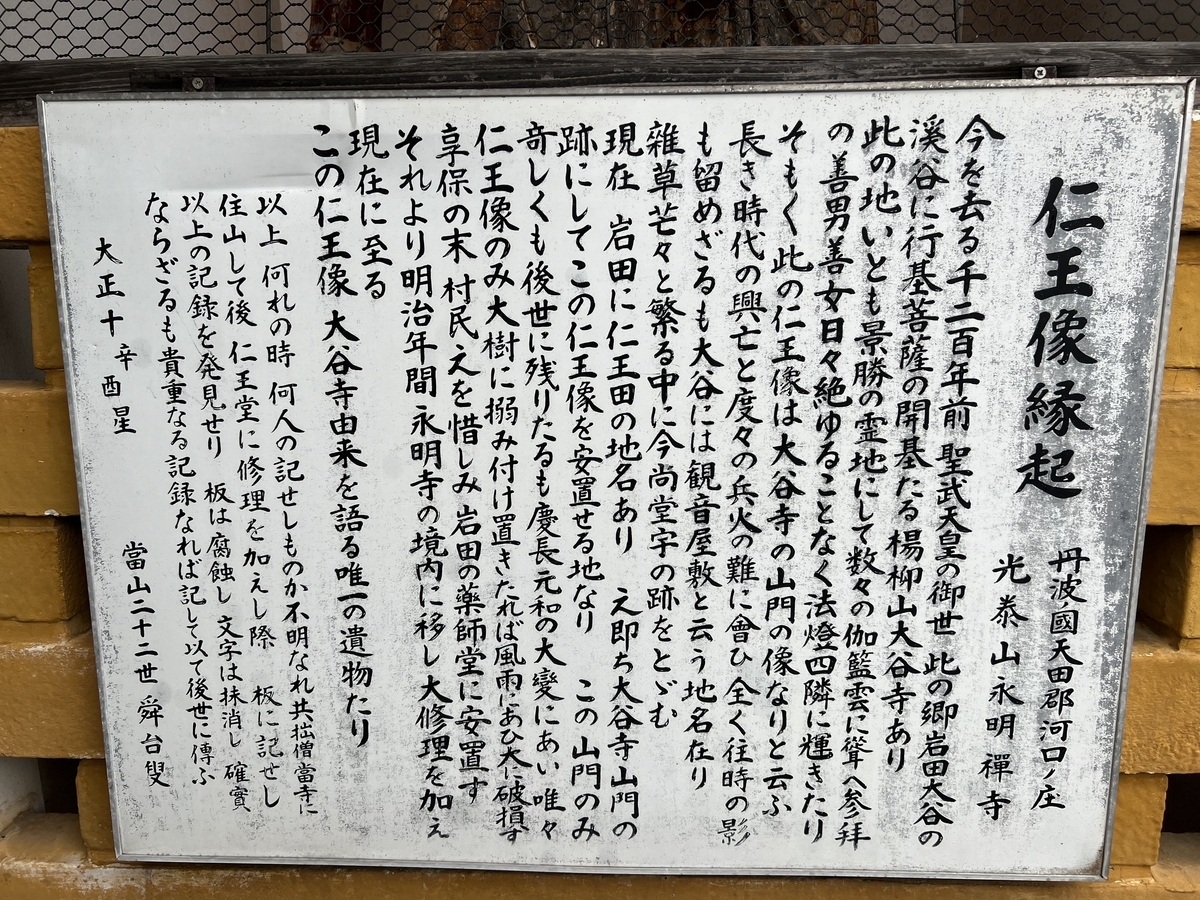 仁王像縁起
丹波國天田郡河口ノ庄
光泰山永明禪寺
今を去る千二百年前 聖武天皇の御世 此の郷岩田大谷の
溪谷に行基菩薩の開基たる楊柳山大谷寺あり
此の地いとも景勝の霊地にして数々の伽籃雲に聳へ参拜
の善男善女日々絶ゆることなく法燈四隣に輝きたり
そもく此の仁王像は大谷寺の山門の像なりと云ふ
長き時代の興亡と度々の兵火の難に會ひ全く往時の影
も留めざるも大谷には観音屋敷と云う地名在り
雑草芒々と繁る中に今尚堂宇の跡をとゞむ
現在 岩田に仁王田の地名あり 之即ち大谷寺山門の
跡にしてこの仁王像を安置せる地なり この山門のみ
奇しくも後世に残りたるも慶長元和の大變にあい唯々
仁王像のみ大樹に搦み付け置きたれば風雨にあひ大に破損す
享保の末 村民之を惜しみ岩田の薬師堂に安置す
それより明治年間永明寺の境内に移し大修理を加え
現在に至る
この仁王像 大谷寺由来を語る唯一の遺物たり
以上 何れの時 何人の記せしものか不明なれ共拙僧當寺に
住山して後 仁王堂に修理を加えし際 板に記せし
以上の記録を発見せり 板は腐蝕し 文字は抹消し 確實
ならざるも貴重なる記録なれば記して以て後世に傳ふ
大正十辛酉星
當山二十二世 舜台叟